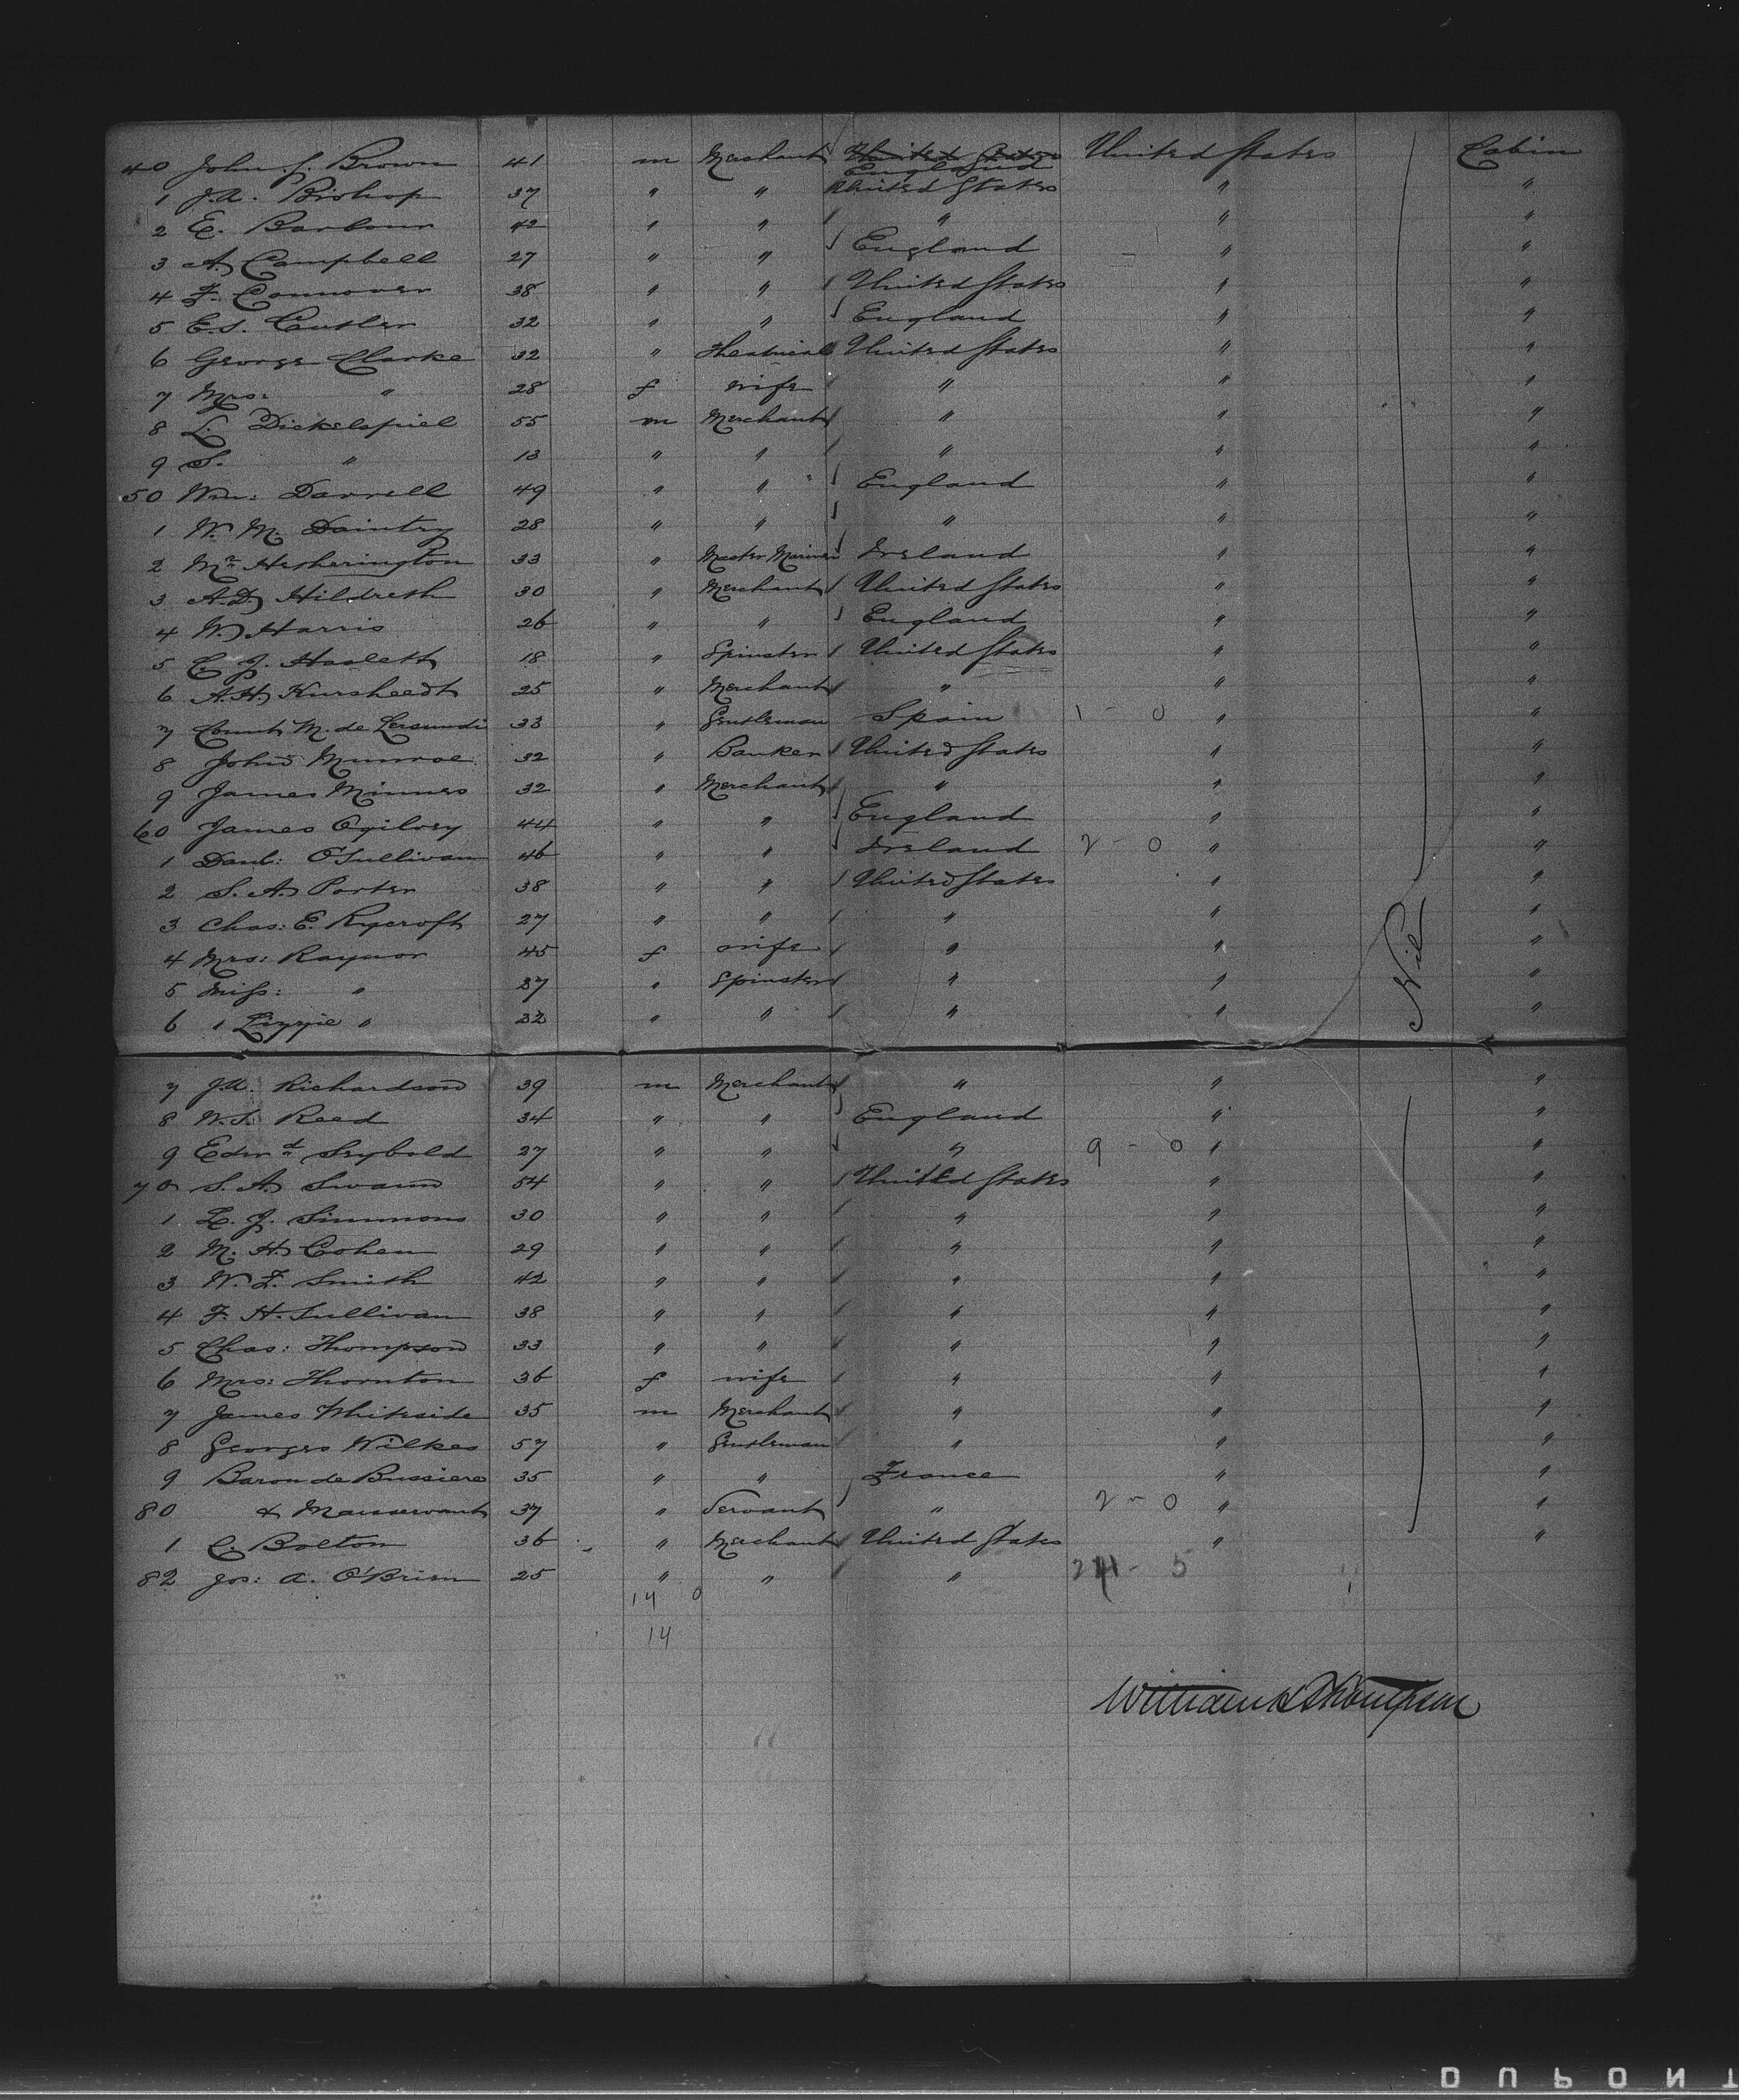 40 John J. Brown 41 m Merchant United States England United States Cabin
1 J.A. Bishop 37 " " United States " "
2 E. Barbour 42 " " " " "
3 A. Campbell 27 " " England " "
4 F. Connover 38 " " United States " "
5 E.S. Cutler 32 " " England " "
6 George Clarke 32 " Theatrical United States " "
7 Mrs: " 28 f wife " " "
8 L. Dickelspiel 55 m Merchant " " "
9 S. " 13 " " " " "
50 Wm: Darrell 49 " " England " "
1 W. M. Daintry 28 " " " " "
2 Mr Hetherington 33 " Master Mariner Ireland " "
3 A.D. Hildreth 30 " Merchant United States " "
4 W. Harris 26 " " England " "
5 C. J. Haslett 18 " Spinster United States " "
6 A.H. Kursheedt 25 " Merchant " " "
7 Count M. de Lersundi 33 " Gentleman Spain 1 - 0 " "
8 John Munroe 32 " Banker United States " "
9 James Minnes 32 " Merchant " " "
60 James Ogilvey 44 " " England " "
1 Danl: O'Sullivan 46 " " Ireland 2 - 0 " "
2 S. A. Porter 38 " " United States " "
3 Chas: E. Rycroft 27 " " " " "
4 Mrs: Raynor 45 f wife " " Nil "
5 Miss: " 37 " Spinster " " "
6 " Lizzie " 32 " " " " "
7 J.A. Richardson 39 m Merchant " " "
8 W.S. Reed 34 " " England " "
9 Edwd Seybold 27 " " " 9 - 0 " "
70 S. A. Swann 54 " " United States " "
1 L. J. Simmons 30 " " " " "
2 M. H. Cohen 29 " " " " "
3 W. F. Smith 42 " " " " "
4 F. H. Sullivan 38 " " " " "
5 Chas: Thompson 33 " " " " "
6 Mrs: Thornton 36 f wife " " "
7 James Whiteside 35 m Merchant " " "
8 Georges Wilkes 57 " Gentleman " " "
9 Baron de Bussiere 35 " " France " "
80 & Manservant 37 " Servant " 2 - 0 " "
1 C. Bolton 36 " Merchant United States " "
82 Jos: A. O'Brien 25 " " " - 5
14 0
14
William H Thompson
DUPONT